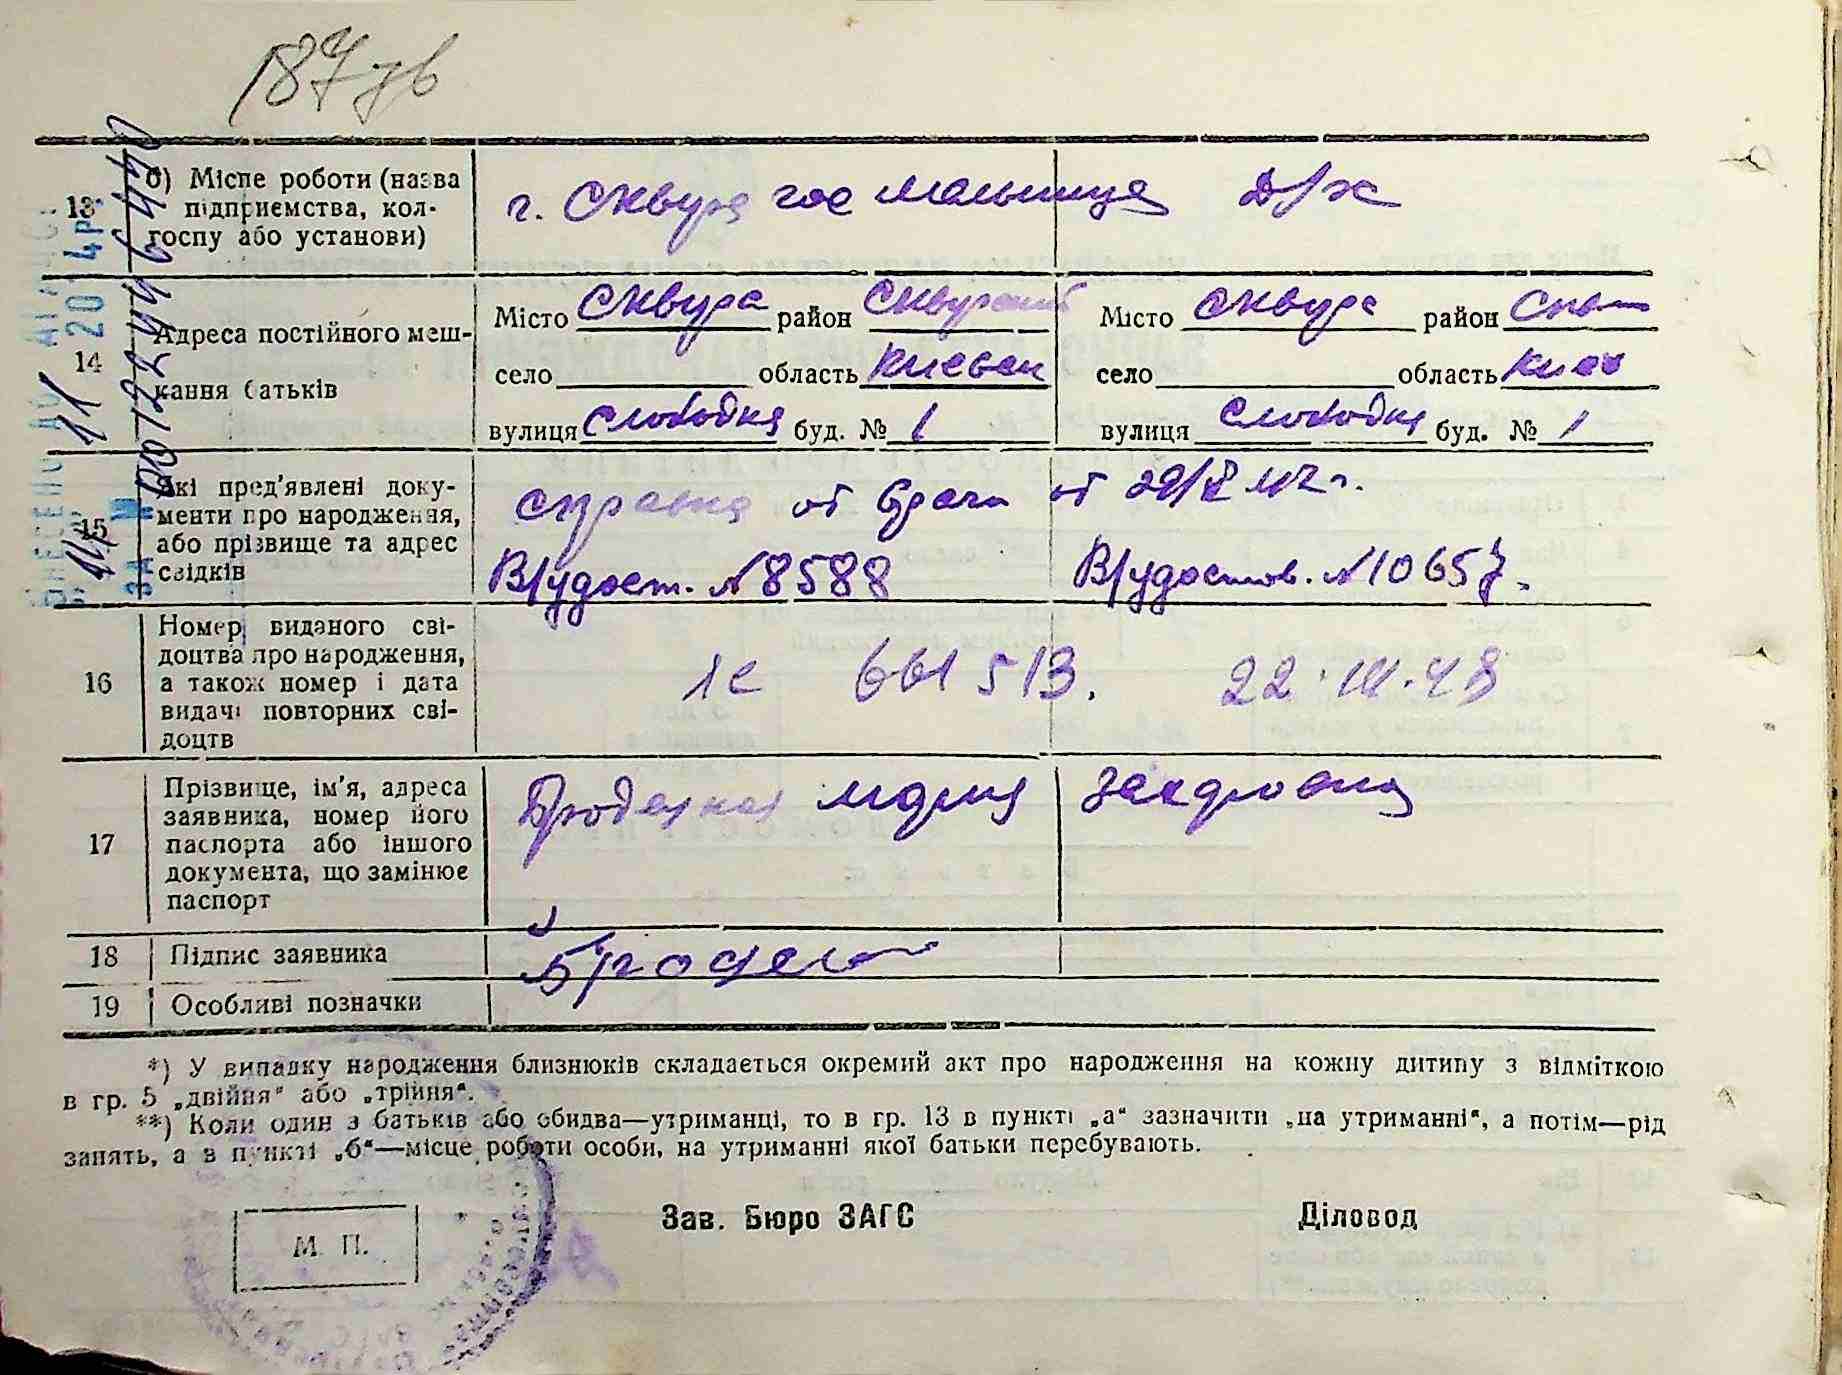 187 зв
13
б) Місце роботи (назва
підприємства, кол-
госпу або установи)
г. Сквира гос мельница
Д/х
14
Адреса постійного меш-
кання батьків
Місто Сквира район Сквирский
село область Киевск
вулиця Слободка буд. № 1
Місто Сквира район Скв
село область Киев
вулиця Слободка буд. № 1
15
Які пред'явлені доку-
менти про народження,
або прізвище та адрес
свідків
справка от врача от
В/удост. №8588
В/удостов. №10657.
16
Номер виданого сві-
доцтва про народження,
а також номер і дата
видачі повторних сві-
доцтв
661513. 22.III.48
17
Прізвище, ім'я, адреса
заявника, номер його
паспорта або іншого
документа, що замінює
паспорт
Мария
18
Підпис заявника
19
Особливі позначки
*) У випадку народження близнюків складається окремий акт про народження на кожну дитину з відміткою
в гр. 5 „двійня“ або „трійня“.
**) Коли один з батьків або обидва—утриманці, то в гр. 13 в пункті „а“ зазначити „на утриманні“, а потім—рід
занять, а в пункті „б“—місце роботи особи, на утриманні якої батьки перебувають.
Зав. Бюро ЗАГС
Діловод
М. П.